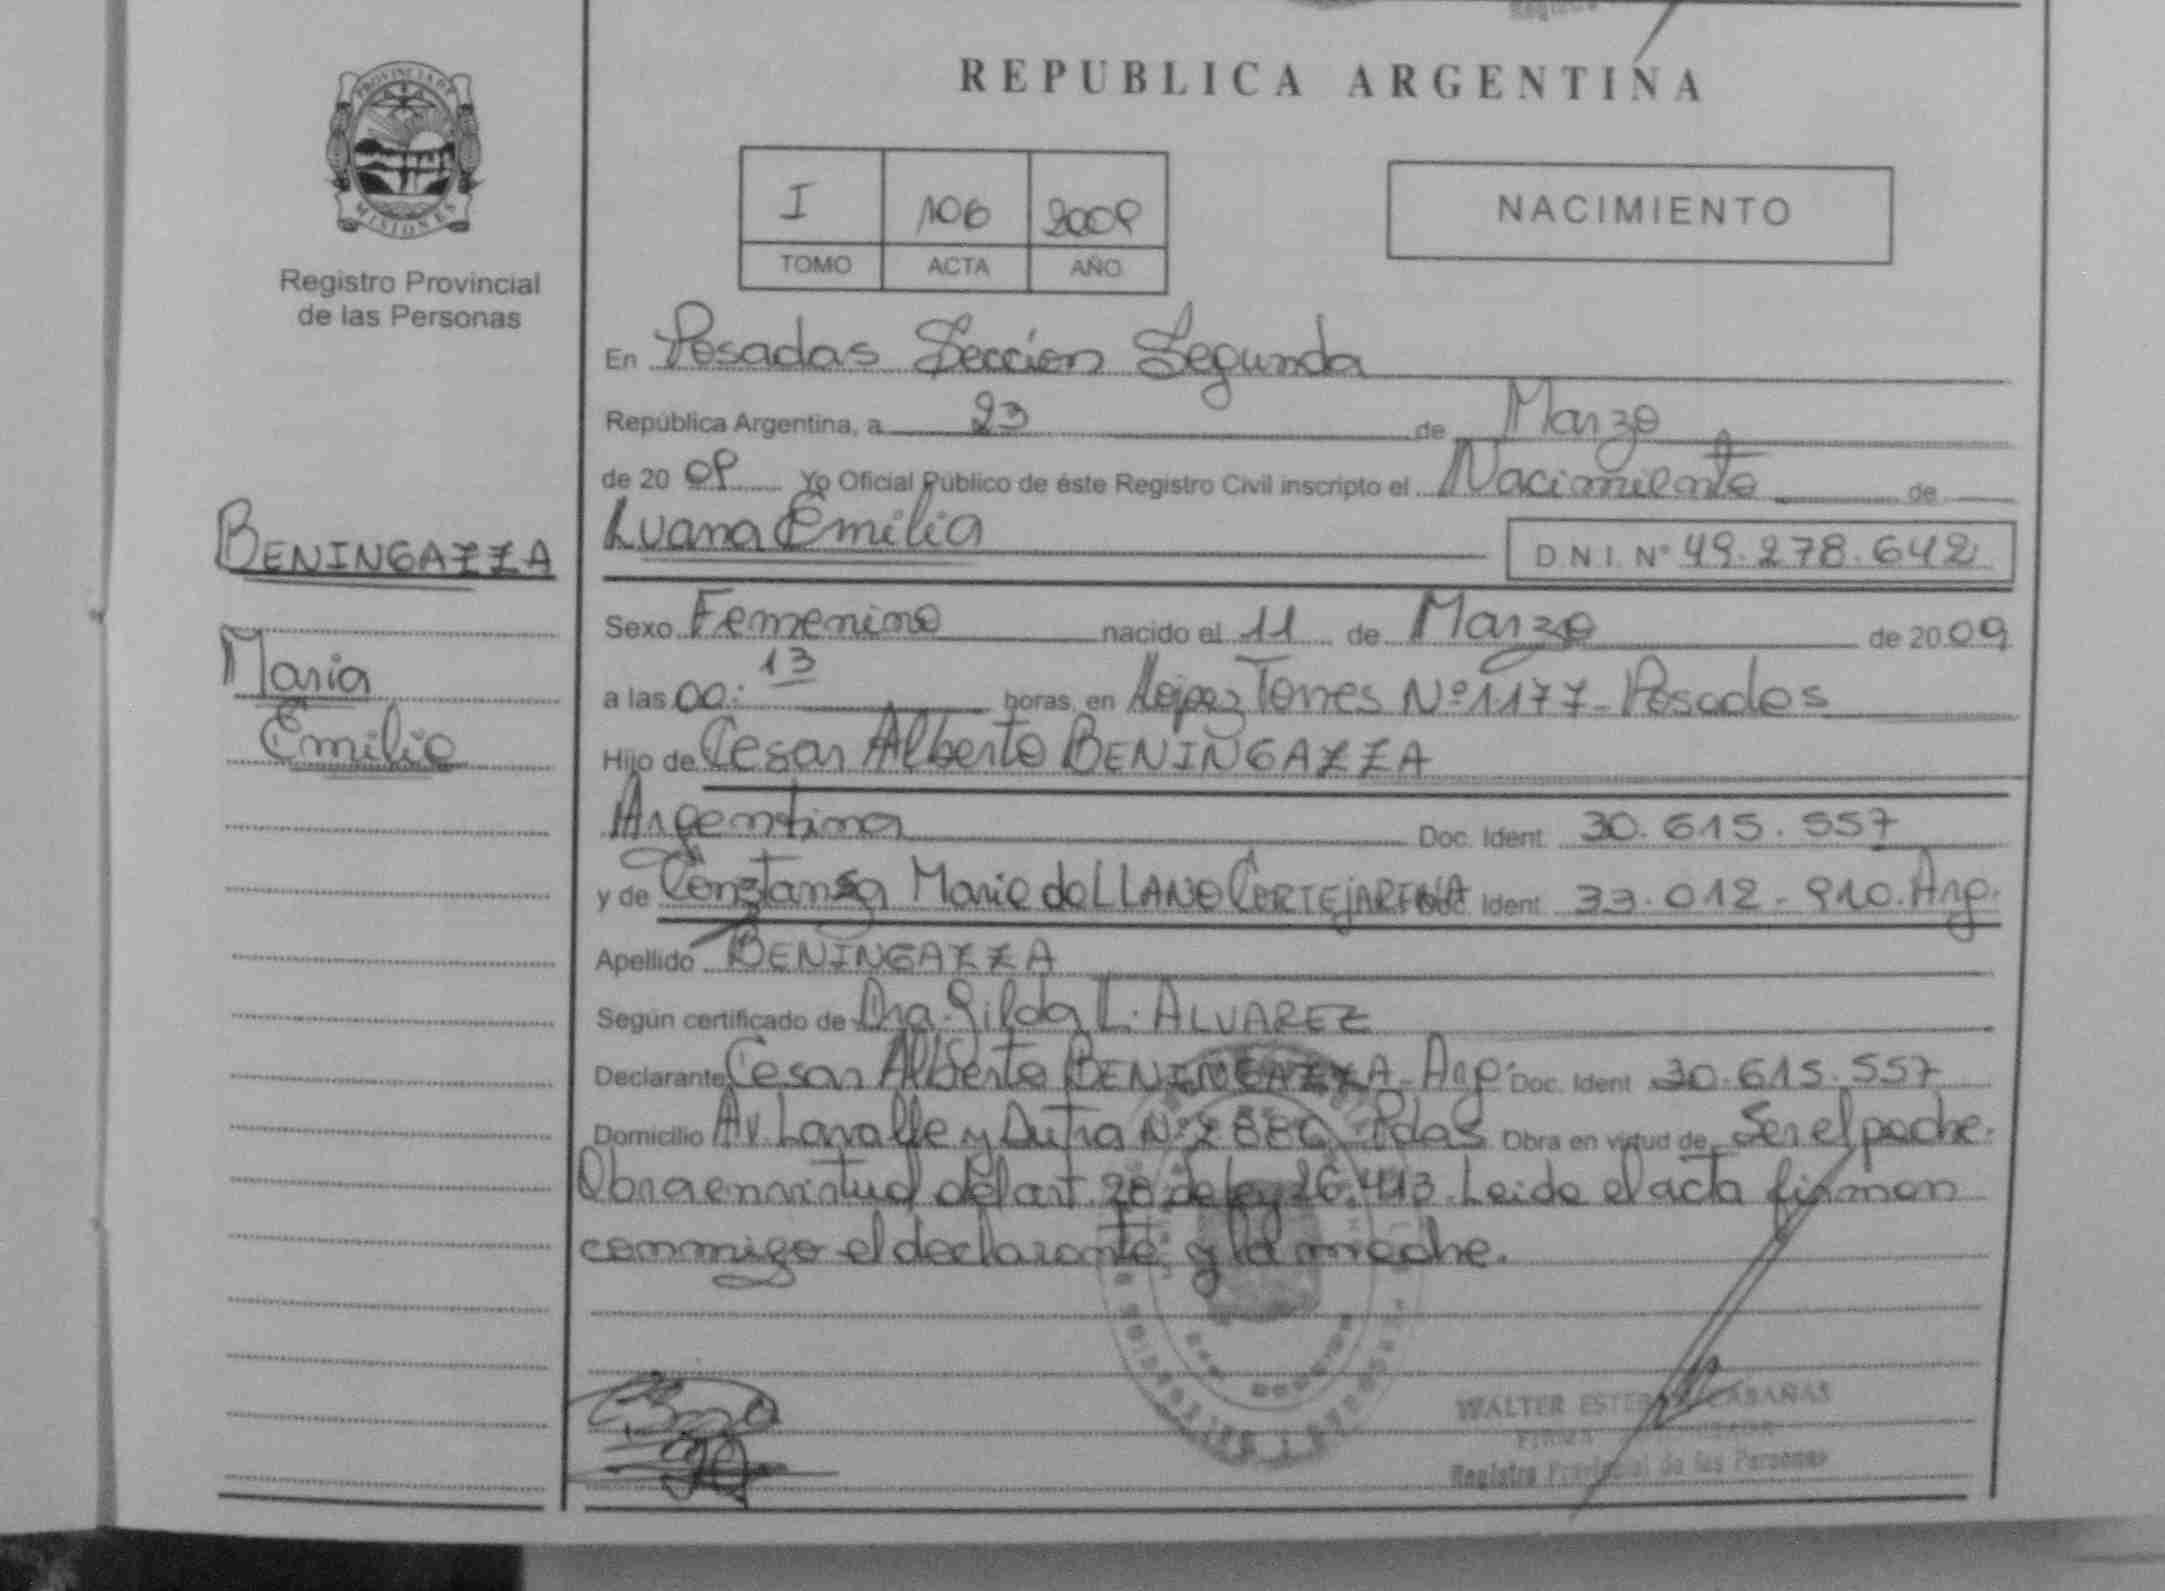 PROVINCIA DE
MISIONES
Registro Provincial
de las Personas
BENINGAZZA
Maria
Emilia
REPUBLICA ARGENTINA
I 106 2009
TOMO ACTA AÑO
NACIMIENTO
En Posadas Sección Segunda
República Argentina, a 23 de Marzo
de 20 09 Yo Oficial Público de éste Registro Civil inscripto el Nacimiento de
Luana Emilia D.N.I. Nº 49.278.642
Sexo Femenino nacido el 11 de Marzo de 20 09
a las 00:13 horas, en López Torres Nº 1177 - Posadas
Hijo de Cesar Alberto BENINGAZZA
Argentina Doc. Ident. 30.615.557
y de Constanza Maria del LLANO CORTEJARENA Doc. Ident. 33.012.910. Arg.
Apellido BENINGAZZA
Según certificado de Dra. Gilda L. ALVAREZ
Declarante Cesar Alberto BENINGAZZA - Arg. Doc. Ident. 30.615.557
Domicilio Av. Lavalle y Dutra Nº - Pdas Obra en virtud de Ser el padre.
Obra en virtud del art. 28 de ley 26.413. Leida el acta firman
conmigo el declarante y la madre.
WALTER ESTEBAN CABAÑAS
FIRMA
Registro Provincial de las Personas